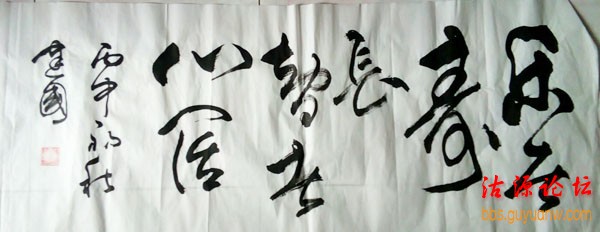 乐者
寿
长
者
心
丙申初秋
建國
沽源论坛
bbs.guyuanw.com